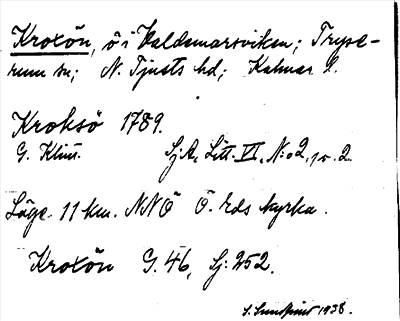 Kroxön, ö i Valdemarsviken; Tryse-
rum sn; N. Tjusts hd; Kalmar l.
Kroksö 1789.
G. Klint. Sj.A, Litt. VI, N:o 2, p. 2.
Läge. 11 km. NNÖ Ö. Eds kyrka.
Kroxön G. 46, Sj: 252.
S. Sundqvist 1938.